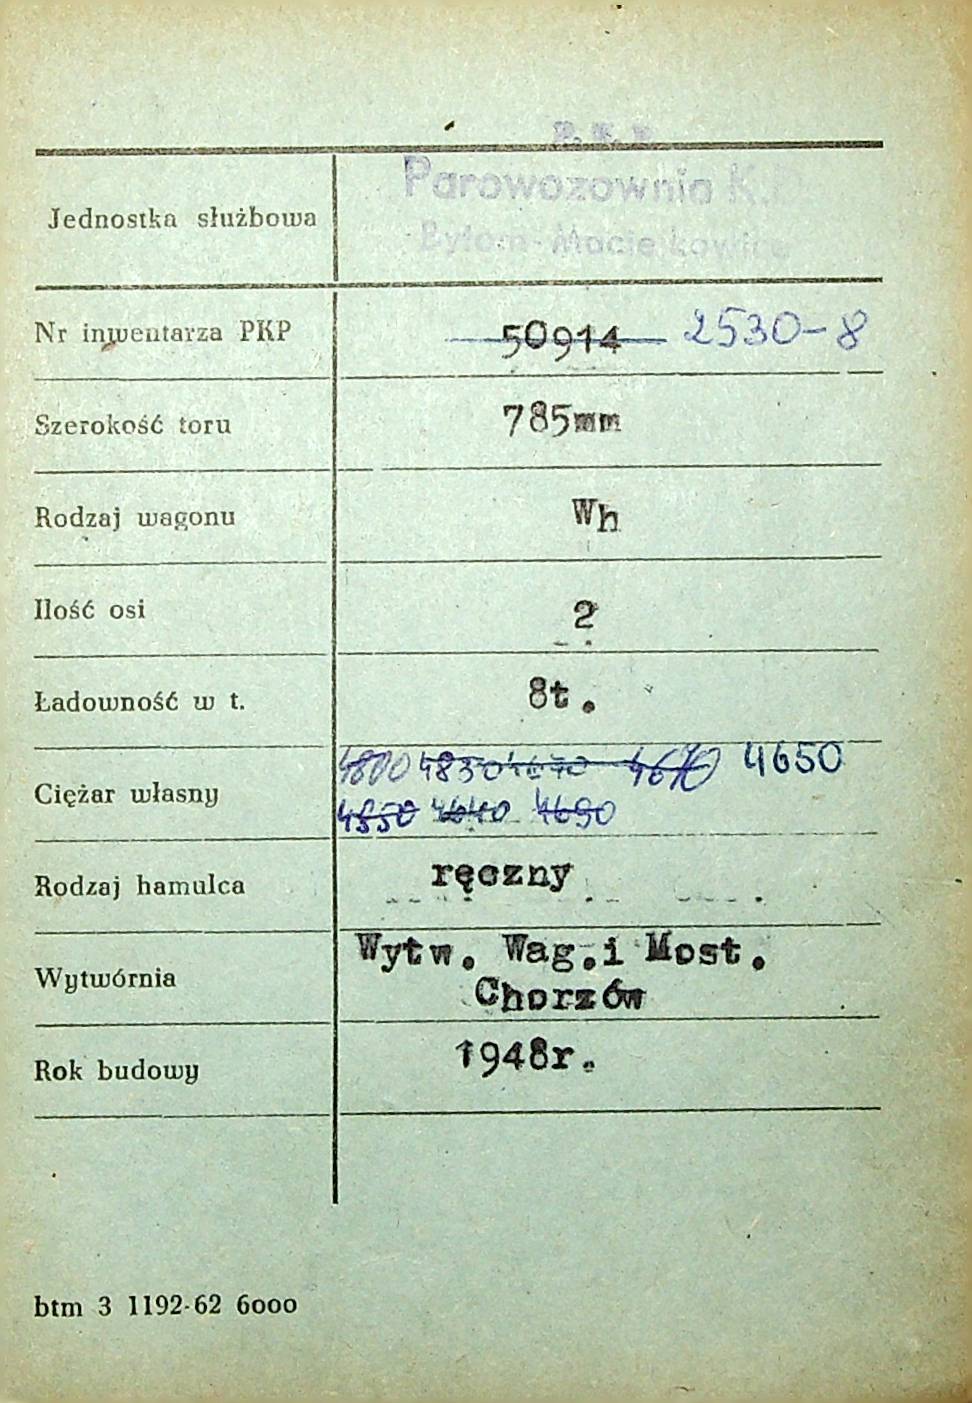 P. K. P.
Parowozownia K.D.
Jednostka służbowa
Bytom-Maciejkowice
Nr inwentarza PKP 50914 2530-8
Szerokość toru 785mm
Rodzaj wagonu Wh
Ilość osi 2
Ładowność w t. 8t.
4800 4830 4670 4650
Ciężar własny
4850 4640 4690
Rodzaj hamulca ręczny
Wytw. Wag.i Most.
Wytwórnia
Chorzów
Rok budowy 1948r.
btm 3 1192-62 6000